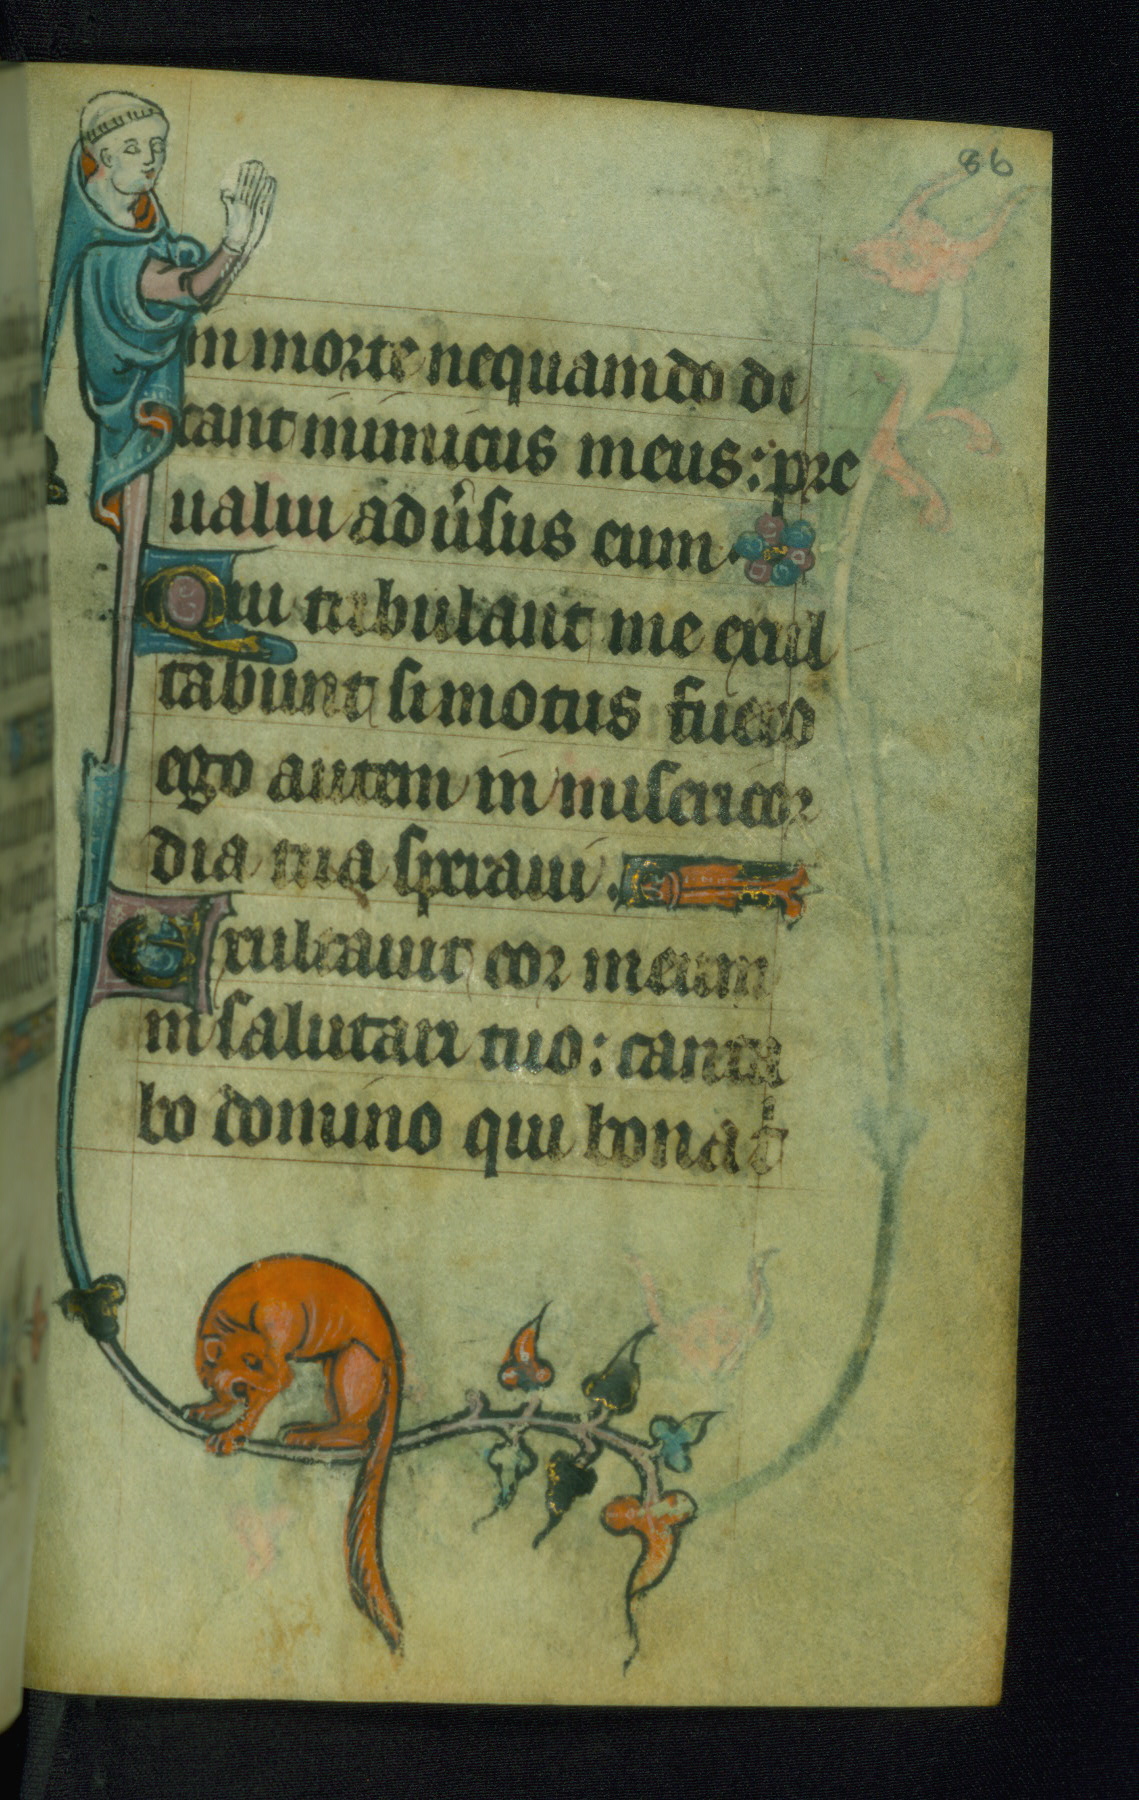 86
in morte nequando di
cant inimicus meus: pre
ualui adu̾sus eum.
Qui tribulant me exul
tabunt si motus fuero
ego autem in misericor
dia tua speraui.
Exultauit cor meum
in salutari tuo: canta
bo domino qui bona t